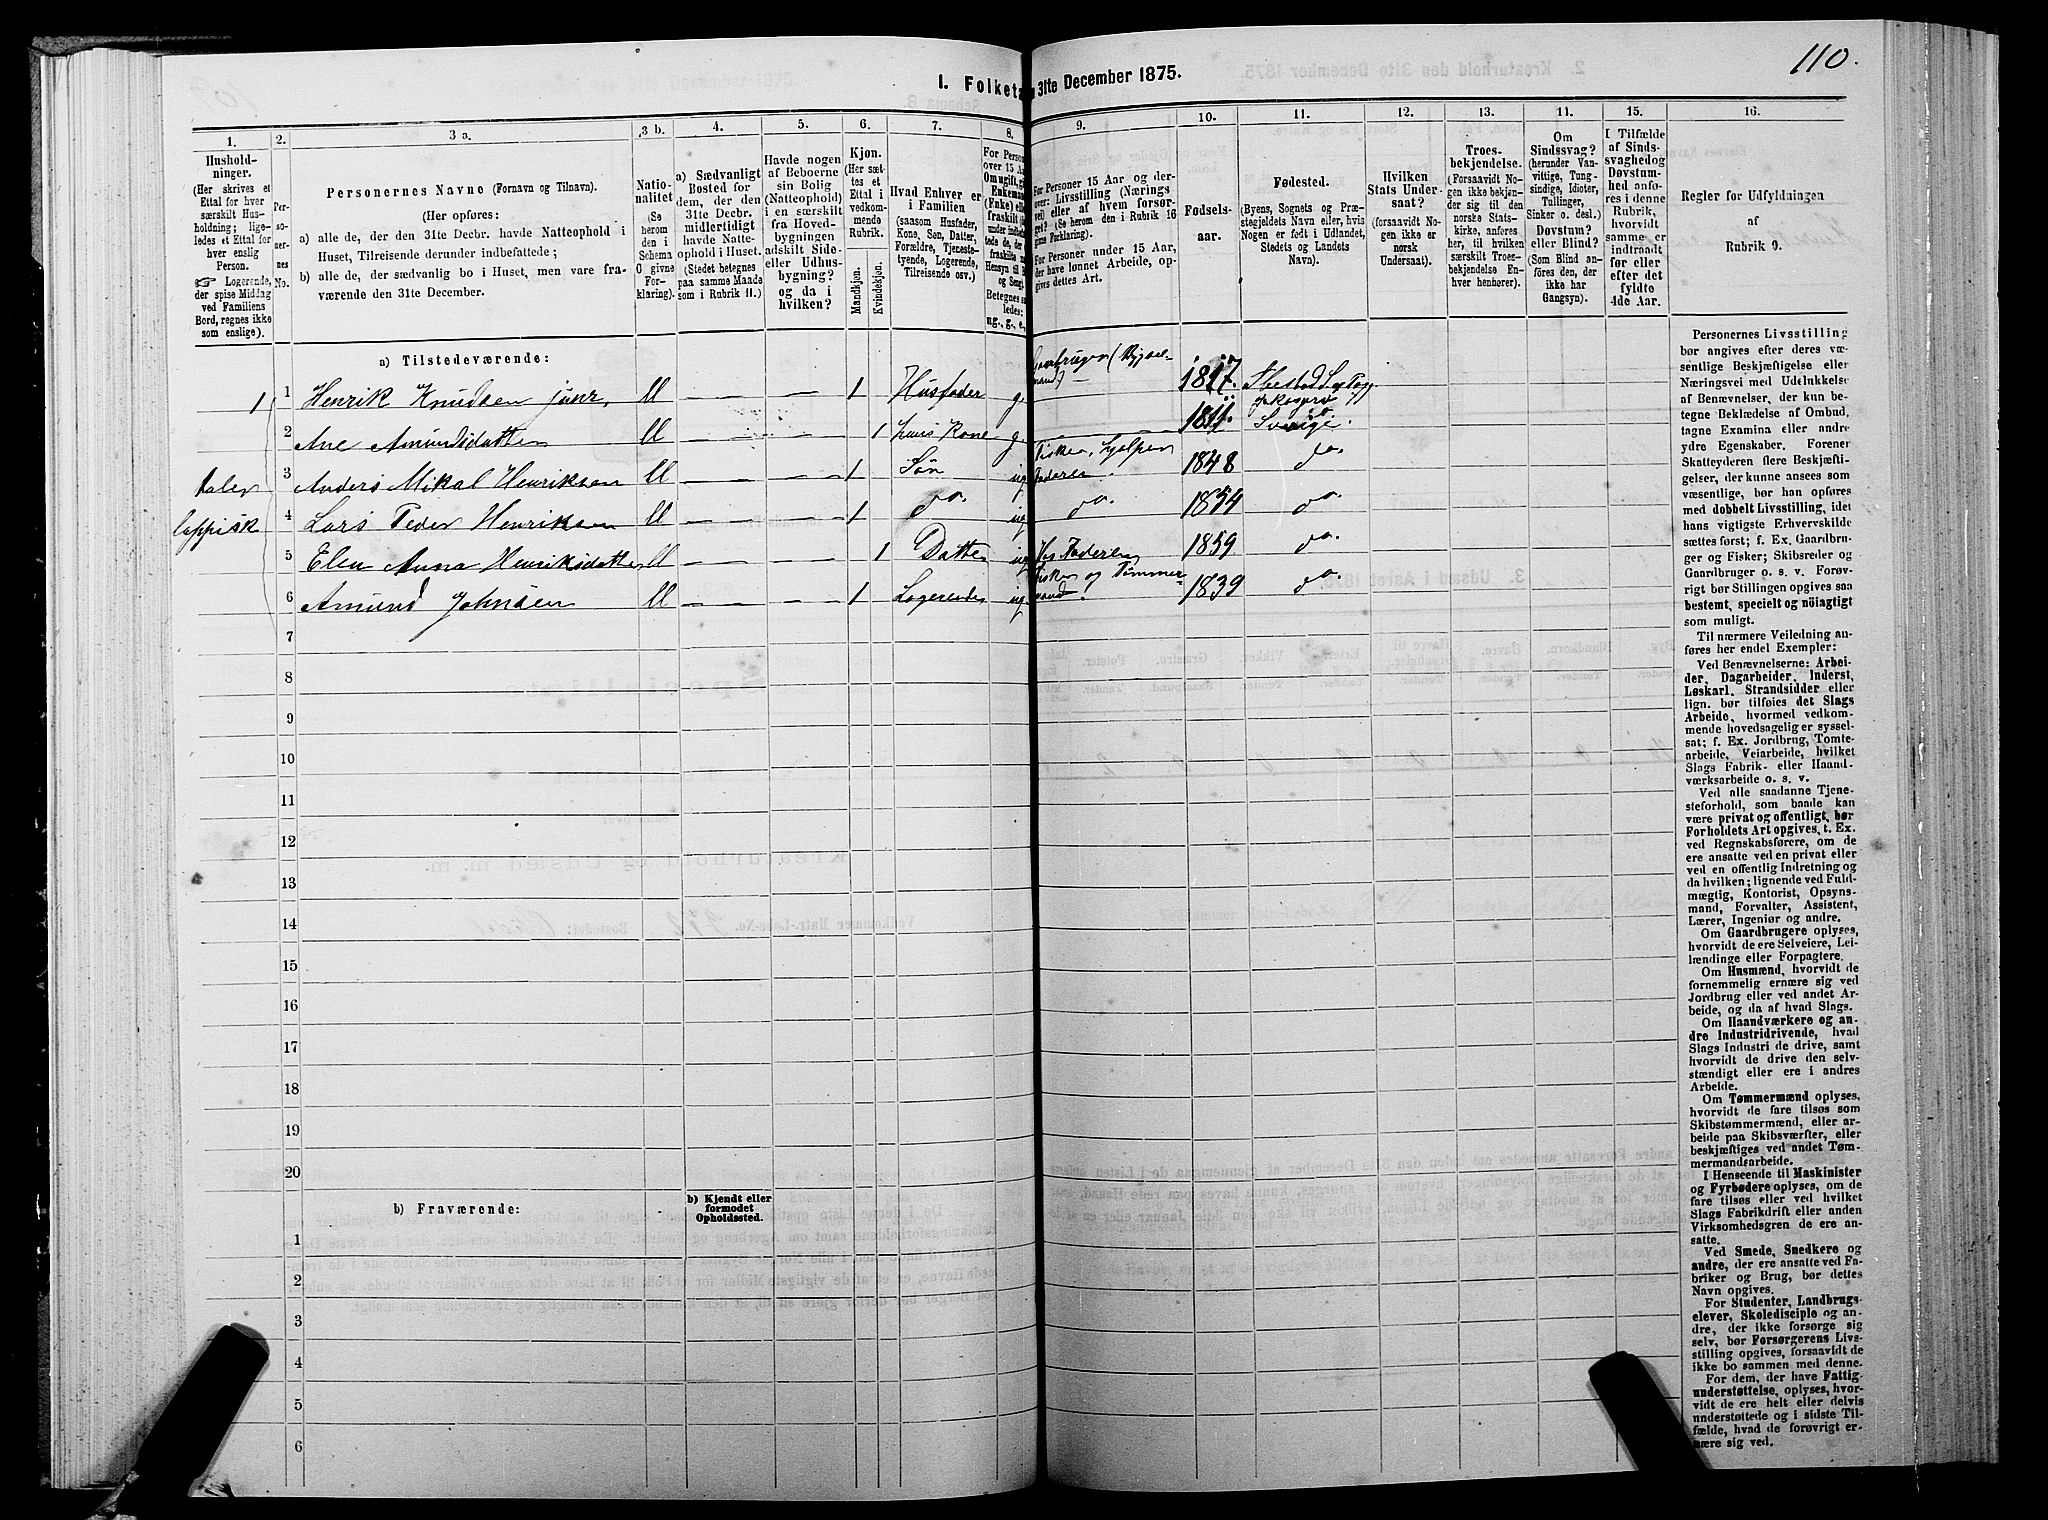 110.
I. Folketæ 31te December 1875.
1. 2. 3 a. 3 b. 4. 5. 6. 7. 8. 9. 10. 11. 12. 13. 11. 15. 16.
Hushold-
ninger.
(Her skrives et
Ettal for hver
særskilt Hus-
holdning; lige-
ledes et Ettal for
hver enslig
Person.
☞ Logerende,
der spise Middag
ved Familiens
Bord, regnes ikke
som enslige).
Per-
so-
ner-
nes
No.
Personernes Navne (Fornavn og Tilnavn).
(Her opføres:
a) alle de, der den 31te Decbr. havde Natteophold i
Huset, Tilreisende derunder indbefattede;
b) alle de, der sædvanlig bo i Huset, men vare fra-
værende den 31te December.
Natio-
nalitet
(Se
herom
den i
Schema
O givne
For-
klaring).
a) Sædvanligt
Bosted for
dem, der den
31te Decbr.
midlertidigt
havde Natte-
ophold i Huset.
(Stedet betegnes
paa samme Maade
som i Rubrik 11.)
Havde nogen
af Beboerne
sin Bolig
(Natteophold)
i en særskilt
fra Hoved-
bygningen
adskilt Side-
eller Udhus-
bygning?
og da i
hvilken?
Kjøn.
(Her sæt-
tes et
Ettal i
vedkom-
mende
Rubrik.
Mandkjøn.
Kvindekjøn.
Hvad Enhver er
i Familien
(saasom Husfader,
Kone, Søn, Datter,
Forældre, Tjeneste-
tyende, Logerende,
Tilreisende osv.)
For Person
over 15 Aa
Omugift, g
Enkeman
(Enke) el
fraskilt
under indb
tede de, d
fraskilte
Hensyn til B
og Seng
Betegnes s
ledes:
ug., g., e,
For Personer 15 Aar og der-
over: Livsstilling (Nærings
vei) eller af hvem forsør-
get? (Se herom den i Rubrik 16
givne Forklaring.)
For Personer under 15 Aar,
der have lønnet Arbeide, op-
gives dettes Art.
Fødsels-
aar.
Fødested.
(Byens, Sognets og Præ-
stegjeldets Navn eller, hvis
Nogen er født i Udlandet,
Stedets og Landets
Navn).
Hvilken
Stats Under-
saat?
(forsaavidt No-
gen ikke er
norsk
Undersaat).
Troes-
bekjendelse.
(Forsaavidt No-
gen ikke bekjen-
der sig til den
norske Stats-
kirke, anføres
her, til hvilken
særskilt Troes-
bekjendelse En-
hver henhører).
Om
Sindssvag?
(herunder Van-
vittige, Tung-
sindige, Idioter,
Tullinger,
Sinker o. desl.)
Døvstum?
eller Blind?
(Som Blind an-
føres den, der
ikke har
Gangsyn).
I Tilfælde
af Sinds-
svaghed og
Døvstum-
hed anfø-
res i denne
Rubrik,
hvorvidt
samme er
indtraadt
før eller
efter det
fyldte
4de Aar.
Regler for Udfyldningen
af
Rubrik 9.
a) Tilstedeværende:
1 1 Henrik Knudsen junr. U — — 1 Husfader g. 1817. Ibestad
2 Ane Amundsdatter U — — 1 hans Kone g. — 1811. Sverige.
taler 3 Anders Mikal Henriksen U — — 1 Søn ug Fisker, hjelper Faderen 1848 do.
lappisk 4 Lars Peder Henriksen U — — 1 do. ug do. 1854 do.
5 Elen Anna Henriksdatter U — — 1 Datter ug 1859 do.
6 Amund Johnsen U — — 1 Logerende ug. Fisker og Tømmermand. 1839 do.
7
8
9
10
11
12
13
14
15
16
17
18
19
20
b) Fraværende:
b) Kjendt eller
formodet
Opholdssted.
1
2
3
4
5
6
Personernes Livsstilling
bør angives efter deres væ-
sentlige Beskjæftigelse eller
Næringsvei med Udelukkelse
af Benævnelser, der kun be-
tegne Beklædelse af Ombud,
tagne Examina eller andre
ydre Egenskaber. Forener
Skatteyderen flere Beskjæfti-
gelser, der kunne ansees som
væsentlige, bør han opføres
med dobbelt Livsstilling, idet
hans vigtigste Erhvervskilde
sættes først; f. Ex. Gaardbru-
ger og Fisker; Skibsreder og
Gaardbruger o. s. v. Forøv-
rigt bør Stillingen opgives saa
bestemt, specielt og nöiagtigt
som muligt.
Til nærmere Veiledning an-
føres her endel Exempler:
Ved Benævnelserne: Arbei-
der, Dagarbeider, Inderst,
Løskarl, Strandsidder eller
lign. bør tilføies det Slags
Arbeide, hvormed vedkom-
mende hovedsagelig er syssel-
sat; f. Ex. Jordbrug, Tomte-
arbeide, Veiarbeide, hvilket
Slags Fabrik- eller Haand-
værksarbeide o. s. v.
Ved alle saadanne Tjene-
steforhold, som baade kan
være privat og offentligt, bør
Forholdets Art opgives, t. Ex.
ved Regnskabsførere, om de
ere ansatte ved en privat eller
ved en offentlig Indretning og
da hvilken; lignende ved Fuld-
mægtig, Kontorist, Opsyns-
mand, Forvalter, Assistent,
Lærer, Ingeniør og andre.
Om Gaardbrugere oplyses,
hvorvidt de ere Selveiere, Lei-
lændinge eller Forpagtere.
Om Husmænd, hvorvidt de
fornemmelig ernære sig ved
Jordbrug eller ved andet Ar-
beide, og da af hvad Slags.
Om Haandværkere og an-
dre Industridrivende, hvad
Slags Industri de drive, samt
hvorvidt de drive den selv-
stændigt eller ere i andres
Arbeide.
Om Tømmermænd oplyses,
hvorvidt de fare tilsøs som
Skibstømmermænd, eller ar-
beide paa Skibsværfter, eller
beskjæftiges ved andet Tøm-
mermandsarbeide.
I Henseende til Maskinister
og Fyrbødere oplyses, om de
fare tilsøs eller ved hvilket
Slags Fabrikdrift eller anden
Virksomhedsgren de ere an-
satte.
Ved Smede, Snedkere og
andre, der ere ansatte ved Fa-
briker og Brug, bør dettes
Navn opgives.
For Studenter, Landbrugs-
elever, Skoledisciple og an-
dre, der ikke forsørge sig
selv, bør Forsørgerens Livs-
stilling opgives, forsaavidt de
ikke bo sammen med denne.
For dem, der have Fattig-
understøttelse, oplyses, hvor-
vidt de ere helt eller delvis
understøttede og i sidste Til-
fælde, hvad de forøvrigt er-
nære sig ved.